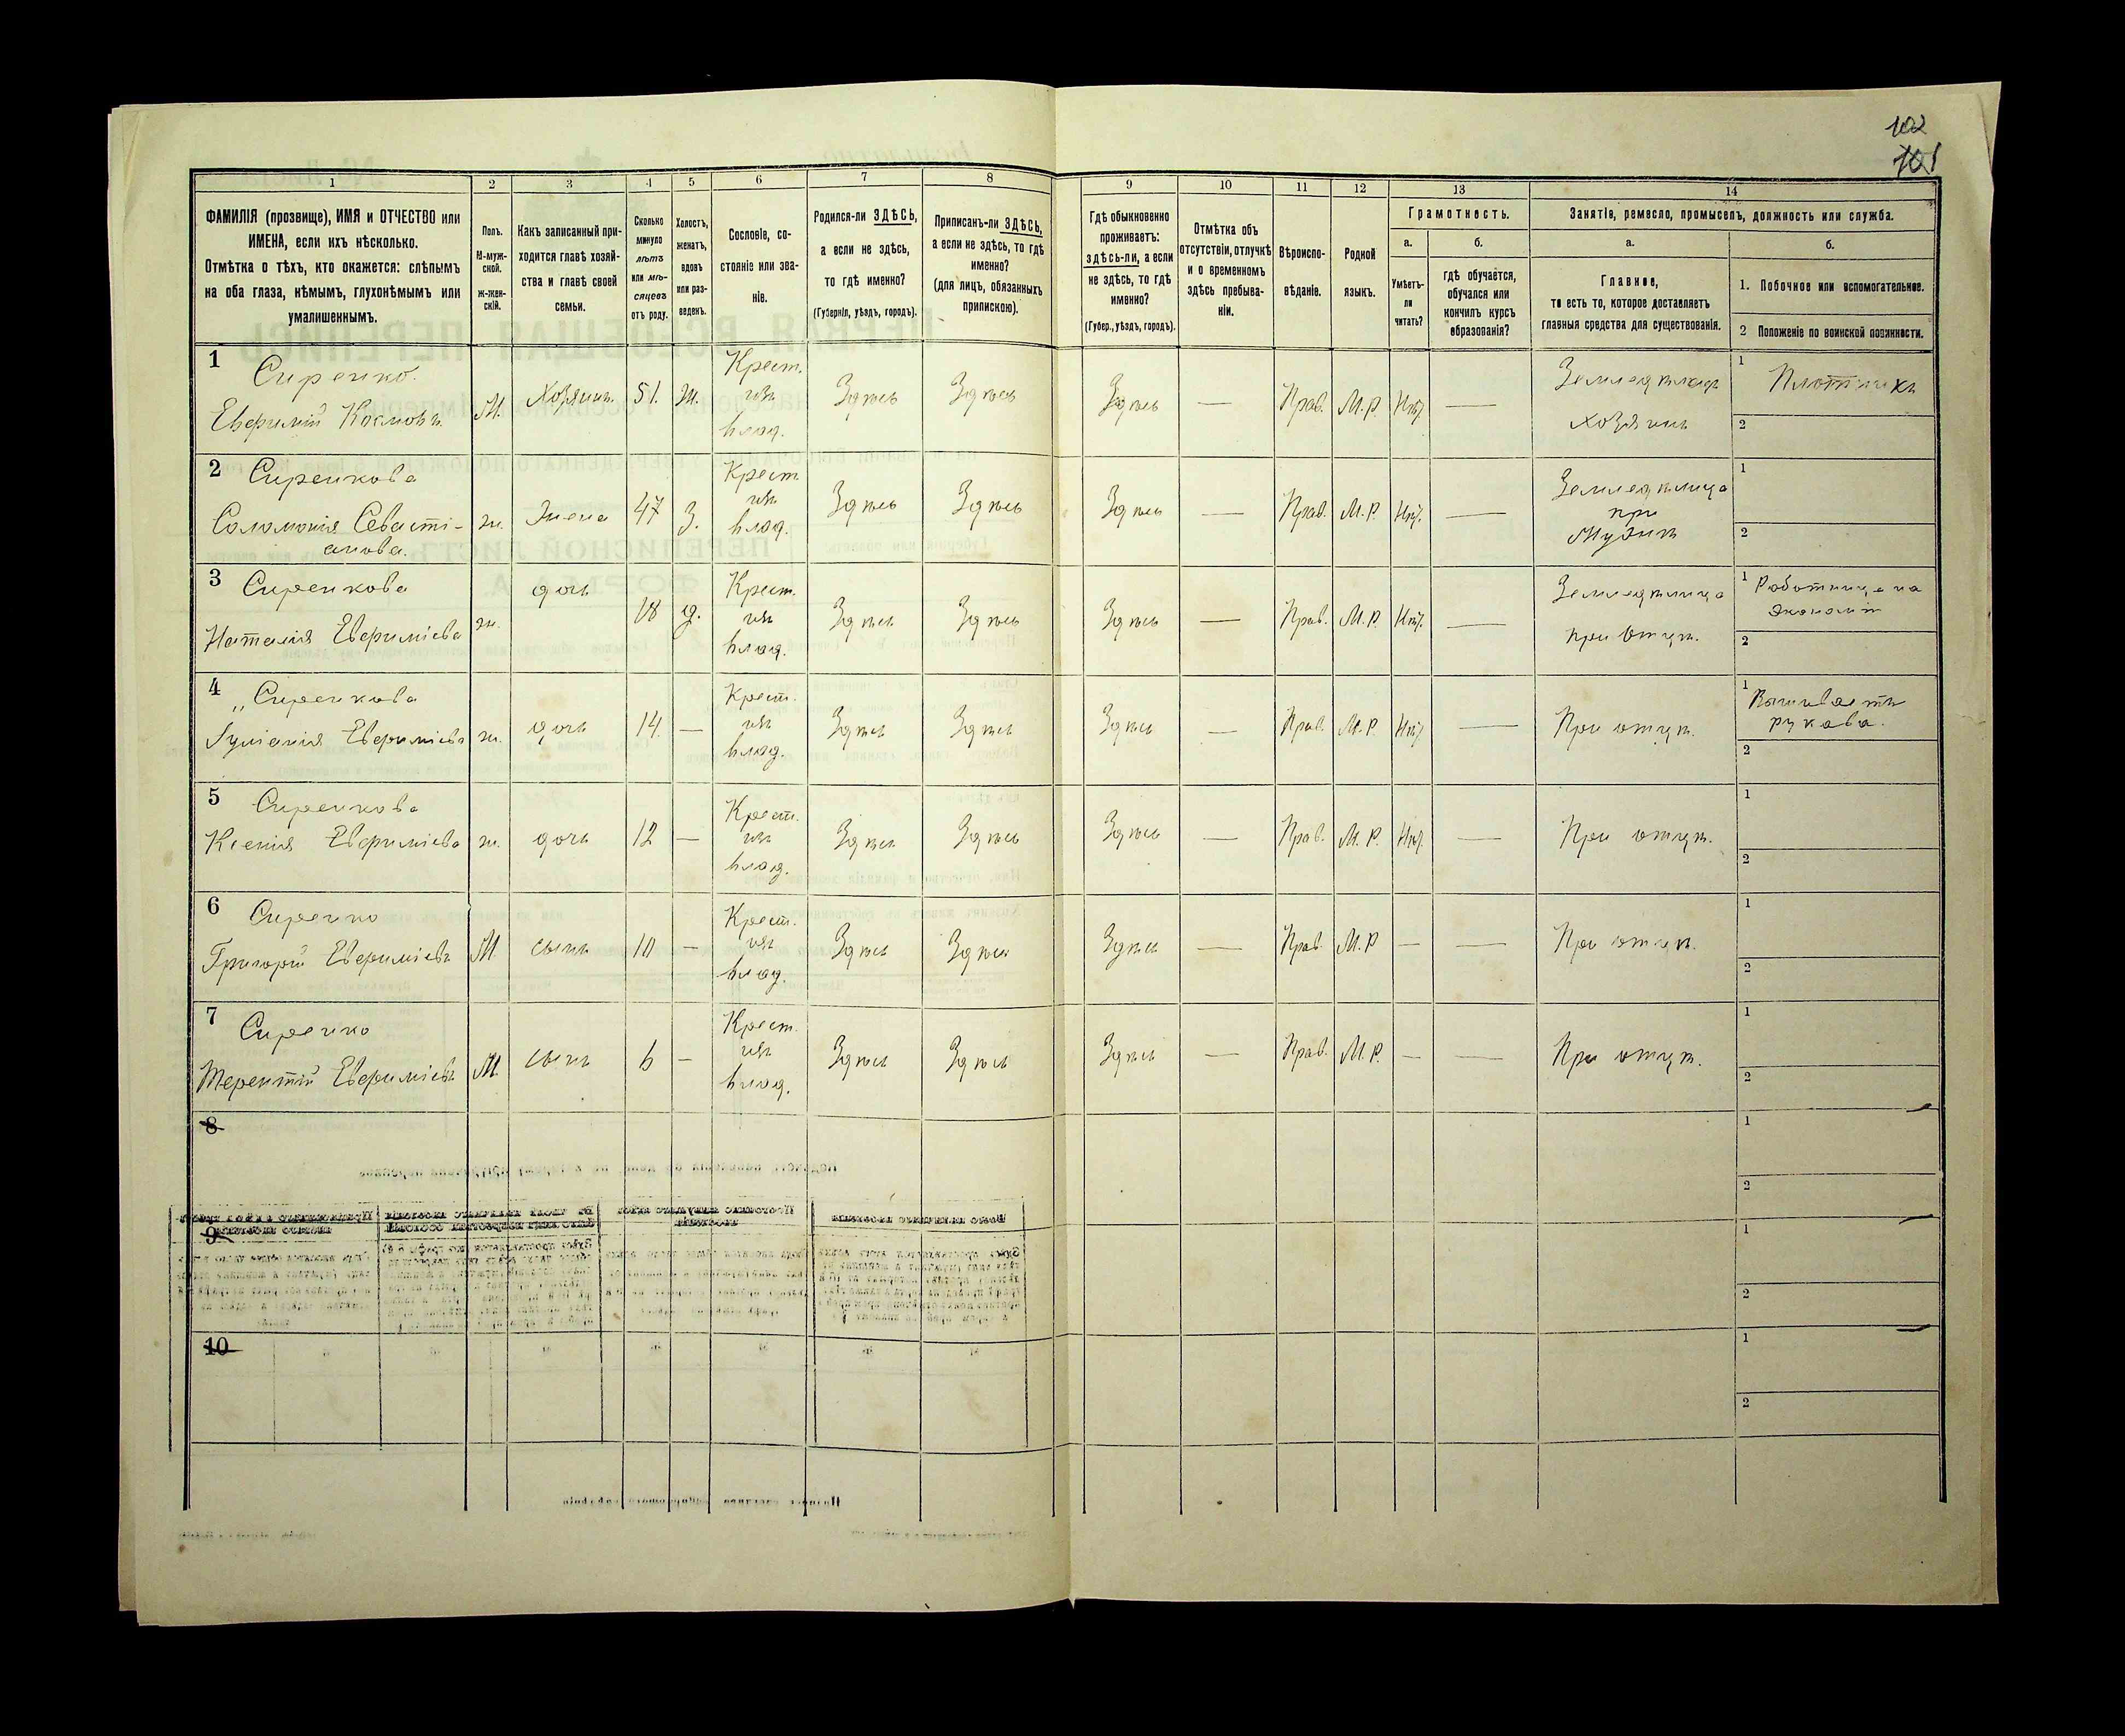 102
101
1
2
3
4
5
6
7
8
9
10
11
12
13
14
ФАМИЛІЯ (прозвище), ИМЯ и ОТЧЕСТВО или
ИМЕНА, если ихъ нѣсколько.
Отмѣтка о тѣхъ, кто окажется: слѣпымъ
на оба глаза, нѣмымъ, глухонѣмымъ или
умалишеннымъ.
Полъ.
М-муж-
ской.
Ж-жен-
скій.
Какъ записанный при-
ходится главѣ хозяй-
ства и главѣ своей
семьи.
Сколько
минуло
лѣтъ
или мѣ-
сяцевъ
отъ роду.
Холостъ,
женатъ,
вдовъ
или раз-
веденъ.
Сословіе, со-
стояніе или зва-
ніе.
Родился-ли ЗДѢСЬ,
а если не здѣсь,
то гдѣ именно?
(Губернія, уѣздъ, городъ).
Приписанъ-ли ЗДѢСЬ,
а если не здѣсь, то гдѣ
именно?
(для лицъ, обязанныхъ
припискою).
Гдѣ обыкновенно
проживаетъ:
здѣсь-ли, а если
не здѣсь, то гдѣ
именно?
(Губер., уѣздъ, городъ).
Отмѣтка объ
отсутствіи, отлучкѣ
и о временномъ
здѣсь пребыва-
ніи.
Вѣроиспо-
вѣданіе.
Родной
языкъ.
Грамотность.
а.
б.
Умѣетъ-
ли
читать?
гдѣ обучается,
обучался или
кончилъ курсъ
образованія?
Занятія, ремесло, промыселъ, должность или служба.
а.
б.
Главное,
то есть то, которое доставляетъ
главныя средства для существованія.
1. Побочное или вспомогательное.
2 Положеніе по воинской повинности.
1
Сиренко.
Евфимій Космовъ.
М.
Хозяинъ
51.
ж.
Крест.
изъ
влад.
Здѣсь
Здѣсь
Здѣсь
—
Прав.
М.р.
Нѣт.
—
Земледѣлецъ
хозяинъ
1 Плотникъ
2
2
Сиренкова
Соломонія Севасті-
анова.
ж.
Жена
47
З.
Крест
изъ
влад.
Здѣсь
Здѣсь
Здѣсь
—
Прав.
М.р.
Нѣт.
—
Земледѣлица
при
мужѣ
1
2
3
Сиренкова
Наталія Евфиміева
ж.
дочь
18
д.
Крест.
изъ
влад.
Здѣсь
Здѣсь
Здѣсь
—
Прав.
М.р.
Нѣт.
—
Земледѣлица
при отцѣ.
1 Работница на
экономіи
2
4
„Сиренкова
Іуліанія Евфиміева
ж.
дочь
14.
—
Крест.
изъ
влад.
Здѣсь
Здѣсь
Здѣсь
—
Прав.
М.р.
Нѣт.
—
При отцѣ.
1 Вышиваетъ
рукава.
2
5
Сиренкова
Ксенія Евфиміева
ж.
дочь
12
—
Крест.
изъ
влад.
Здѣсь
Здѣсь
Здѣсь
—
Прав.
М.р.
Нѣт.
—
При отцѣ.
1
2
6
Сиренко
Григорій Евфиміевъ
М
сынъ
10
—
Крест.
изъ
влад.
Здѣсь
Здѣсь
Здѣсь
—
Прав.
М.р
—
—
При отцѣ.
1
2
7
Сиренко
Терентій Евфиміевъ
М.
сынъ
6
—
Крест.
изъ
влад.
Здѣсь
Здѣсь
Здѣсь
—
Прав.
М.р.
—
—
При отцѣ.
1
2
8
1
2
9
1
2
10
1
2